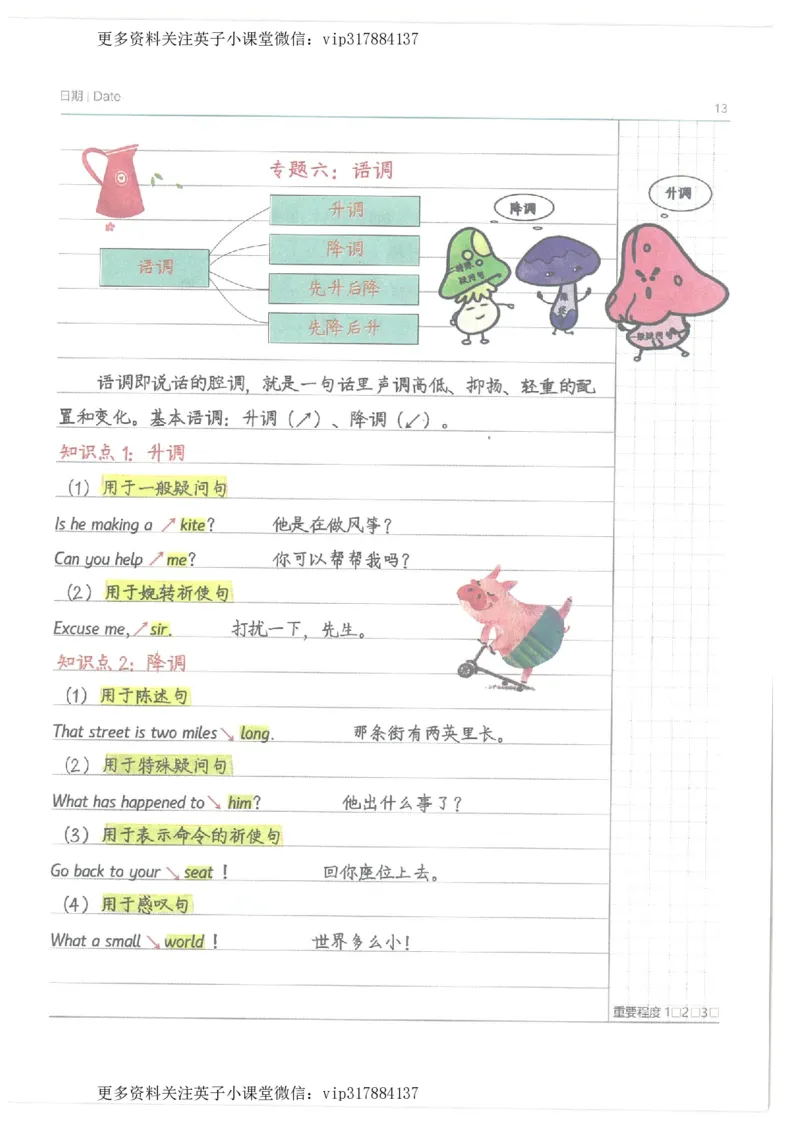 更多资料关注英子小课堂微信：vip317884137
日期 | Date
13
专题六：语调
语调
升调
降调
先升后降
先降后升
降调
升调
特殊
疑问句
一般疑问句
语调即说话的腔调，就是一句话里声调高低、抑扬、轻重的配
置和变化。基本语调：升调（↗）、降调（↙）。
知识点1：升调
（1）用于一般疑问句
Is he making a ↗ kite? 他是在做风筝？
Can you help ↗ me? 你可以帮帮我吗？
（2）用于婉转祈使句
Excuse me,↗ sir. 打扰一下，先生。
知识点2：降调
（1）用于陈述句
That street is two miles↘ long. 那条街有两英里长。
（2）用于特殊疑问句
What has happened to↘ him? 他出什么事了？
（3）用于表示命令的祈使句
Go back to your ↘ seat ! 回你座位上去。
（4）用于感叹句
What a small ↘ world ! 世界多么小！
重要程度 1□2□3□
更多资料关注英子小课堂微信：vip317884137